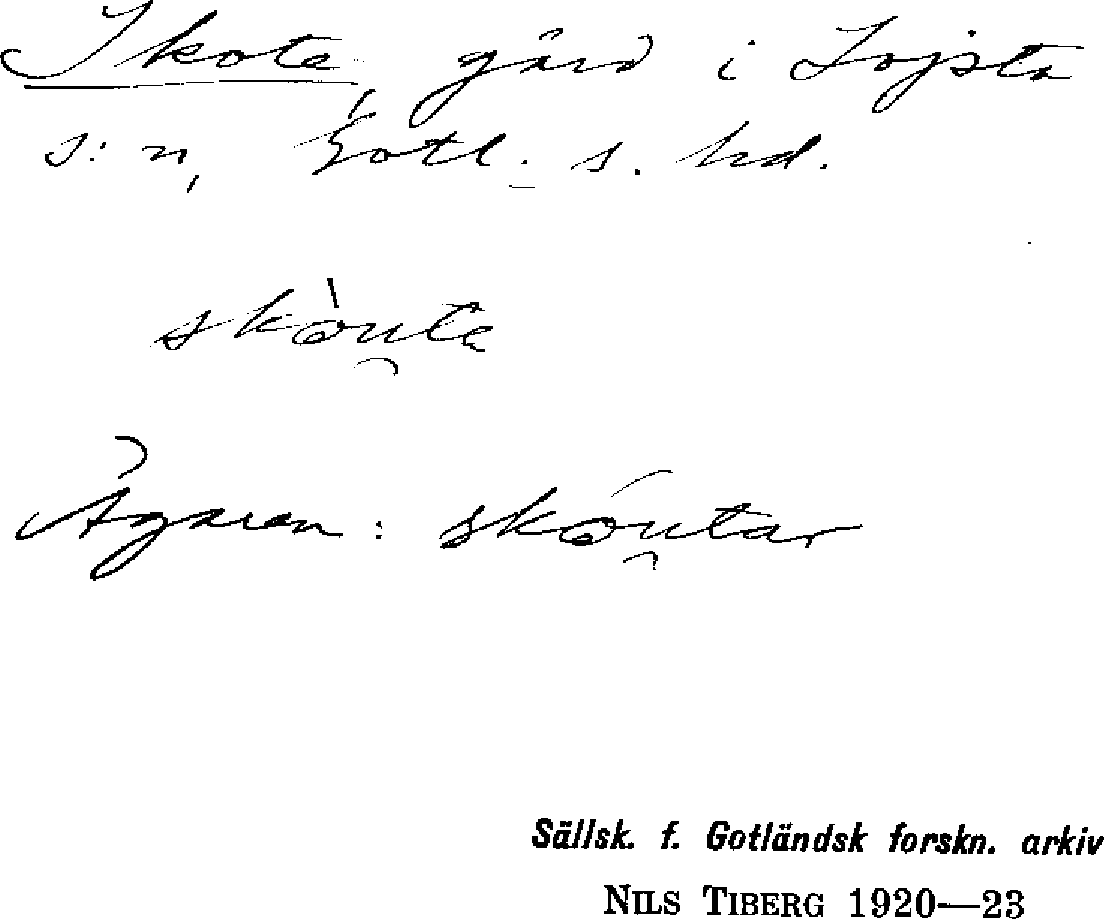 Skote gård i Lojsta
s:n, Gotl. s. hd.
skòu̯tɐ
Ägaren: skóu̯tar
Sällsk. f. Gotländsk forskn. arkiv
NILS TIBERG 1920—23